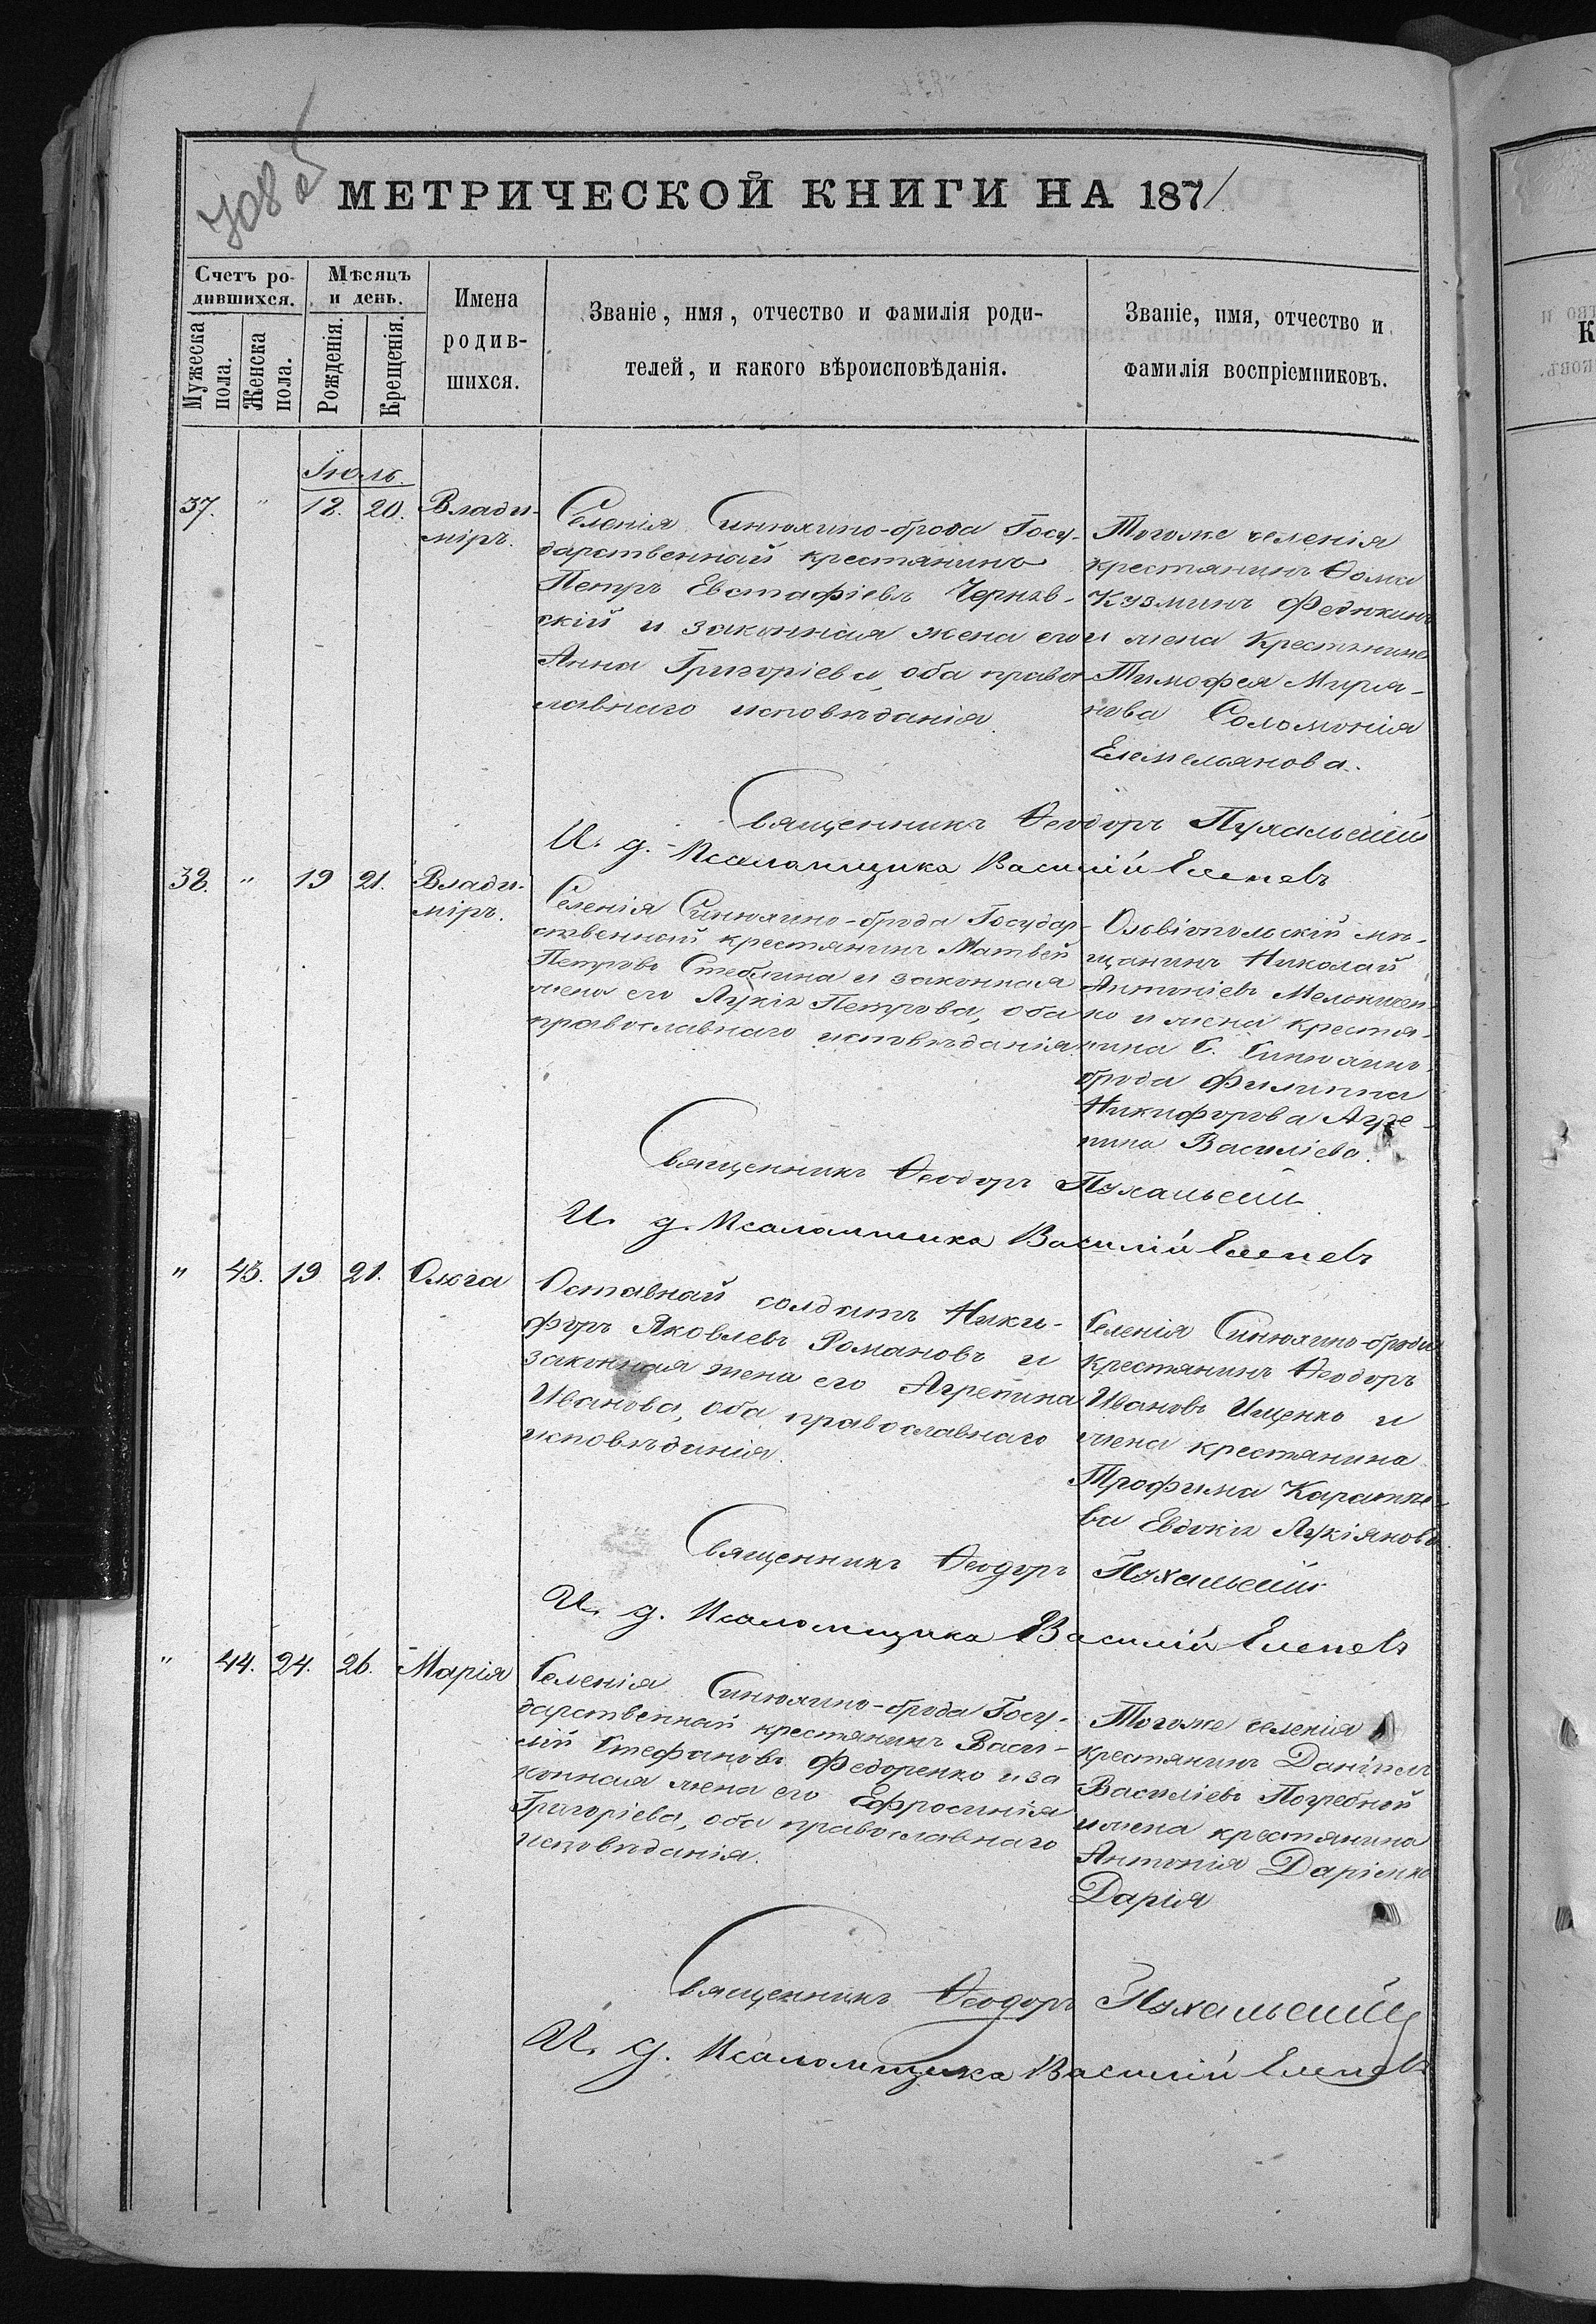 708 об
МЕТРИЧЕСКОЙ КНИГИ НА 1871
Счетъ ро-
дившихся.
Мужеска
пола.
Женска
пола.
Мѣсяцъ
и день.
Рожденія.
Крещенія.
Имена
родив-
шихся.
Званіе, имя, отчество и фамилія роди-
телей, и какого вѣроисповѣданія.
Званіе, имя, отчество и
фамилія воспріемниковъ.
Іюль.
37. " 18. 20. Влади-
міръ.
Селенія Синюхино-брода Госу-
дарственный крестянинъ
Петръ Евстафіевъ Черняв-
скій и законная жена его
Анна Григоріева, оба право
лавнаго исповѣданія.
Тогоже селенія
крестянинъ Ѳома
Кузминъ Федюкинъ
и жена Крестянина
Тимофея Миря-
нова Соломонія
Елемельянова.
Священникъ Ѳеодоръ Пухальскій
И. д. Псаломщика Василій
38. " 19 21. Влади-
міръ.
Селенія Синюхино-брода Государ-
ственный крестянинъ Матвей
Петровъ Стеблина и законная
жена его Лукія Петрова, оба
православнаго исповѣданія.
Ольвіопольскій мѣ-
щанинъ Николай
Антоніевъ Мельничен-
ко и жена крестя-
нина С. Синюхино-
брода Филиппа
Никифорова Агре-
пина Василіева.
Священникъ Ѳеодоръ Пухальскій
И. д. Псаломщика Василій
" 43. 19 21. Ольга
Оставный солдатъ Ники-
форъ Яковлевъ Романовъ и
законная жена его Агрепина
Иванова, оба православнаго
исповѣданія.
Селенія Синюхино-брода
крестянинъ Ѳеодоръ
Ивановъ Ищенко и
жена крестянина
Трофима
ва Евдокія Лукіянова
Священникъ Ѳеодоръ Пухальскій
И. д. Псаломщика Василій
" 44. 24. 26. Марія
Селенія Синюхино-брода Госу-
дарственный крестянинъ Васи-
лій Стефановъ Федоренко и за
конная жена его Ефросинія
Григоріева, оба православнаго
исповѣданія.
Тогоже селенія
крестянинъ Даніилъ
Василіевъ Погребной
и жена крестянина
Антонія Даріенко
Дарія
Священникъ Ѳеодоръ Пухальскій
И. д. Псаломщика Василій